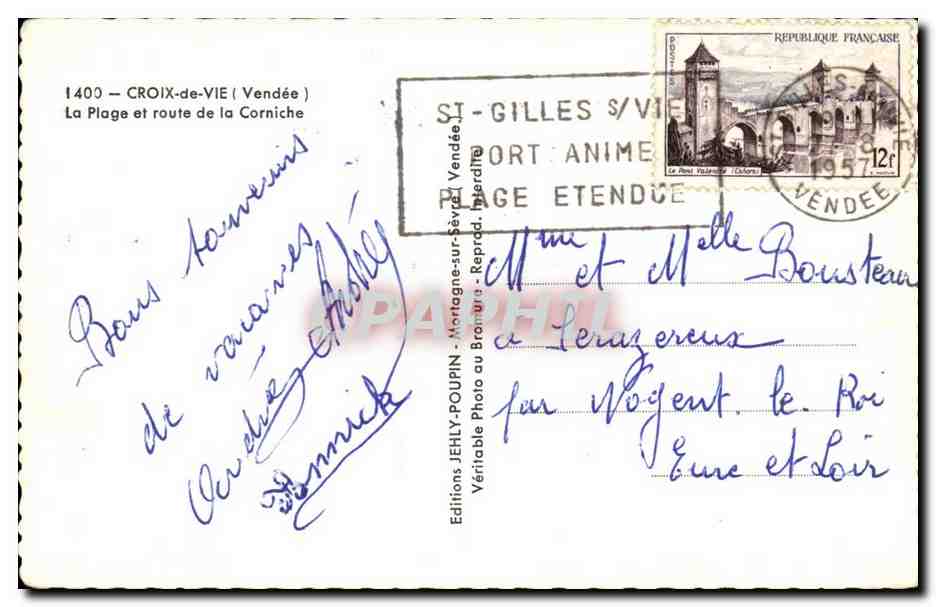 1400 – CROIX-de-VIE ( Vendée )
La Plage et route de la Corniche
ST-GILLES S/ VIE
PORT ANIME
PLAGE ETENDUE
REPUBLIQUE FRANÇAISE
POSTES
Le Pont Valentré (Cahors)
12F
1957
VENDEE
Bons souvenirs
de vacances
Andrée et
Yannick
Editions JEHLY-POUPIN - Mortagne-sur-Sèvre ( Vendée )
Véritable Photo au Bromure - Reprod. Interdite
Mme et Melle Bousteau
à Serazereux
par Nogent. le. Roi
Eure et Loir
CPAPHIL